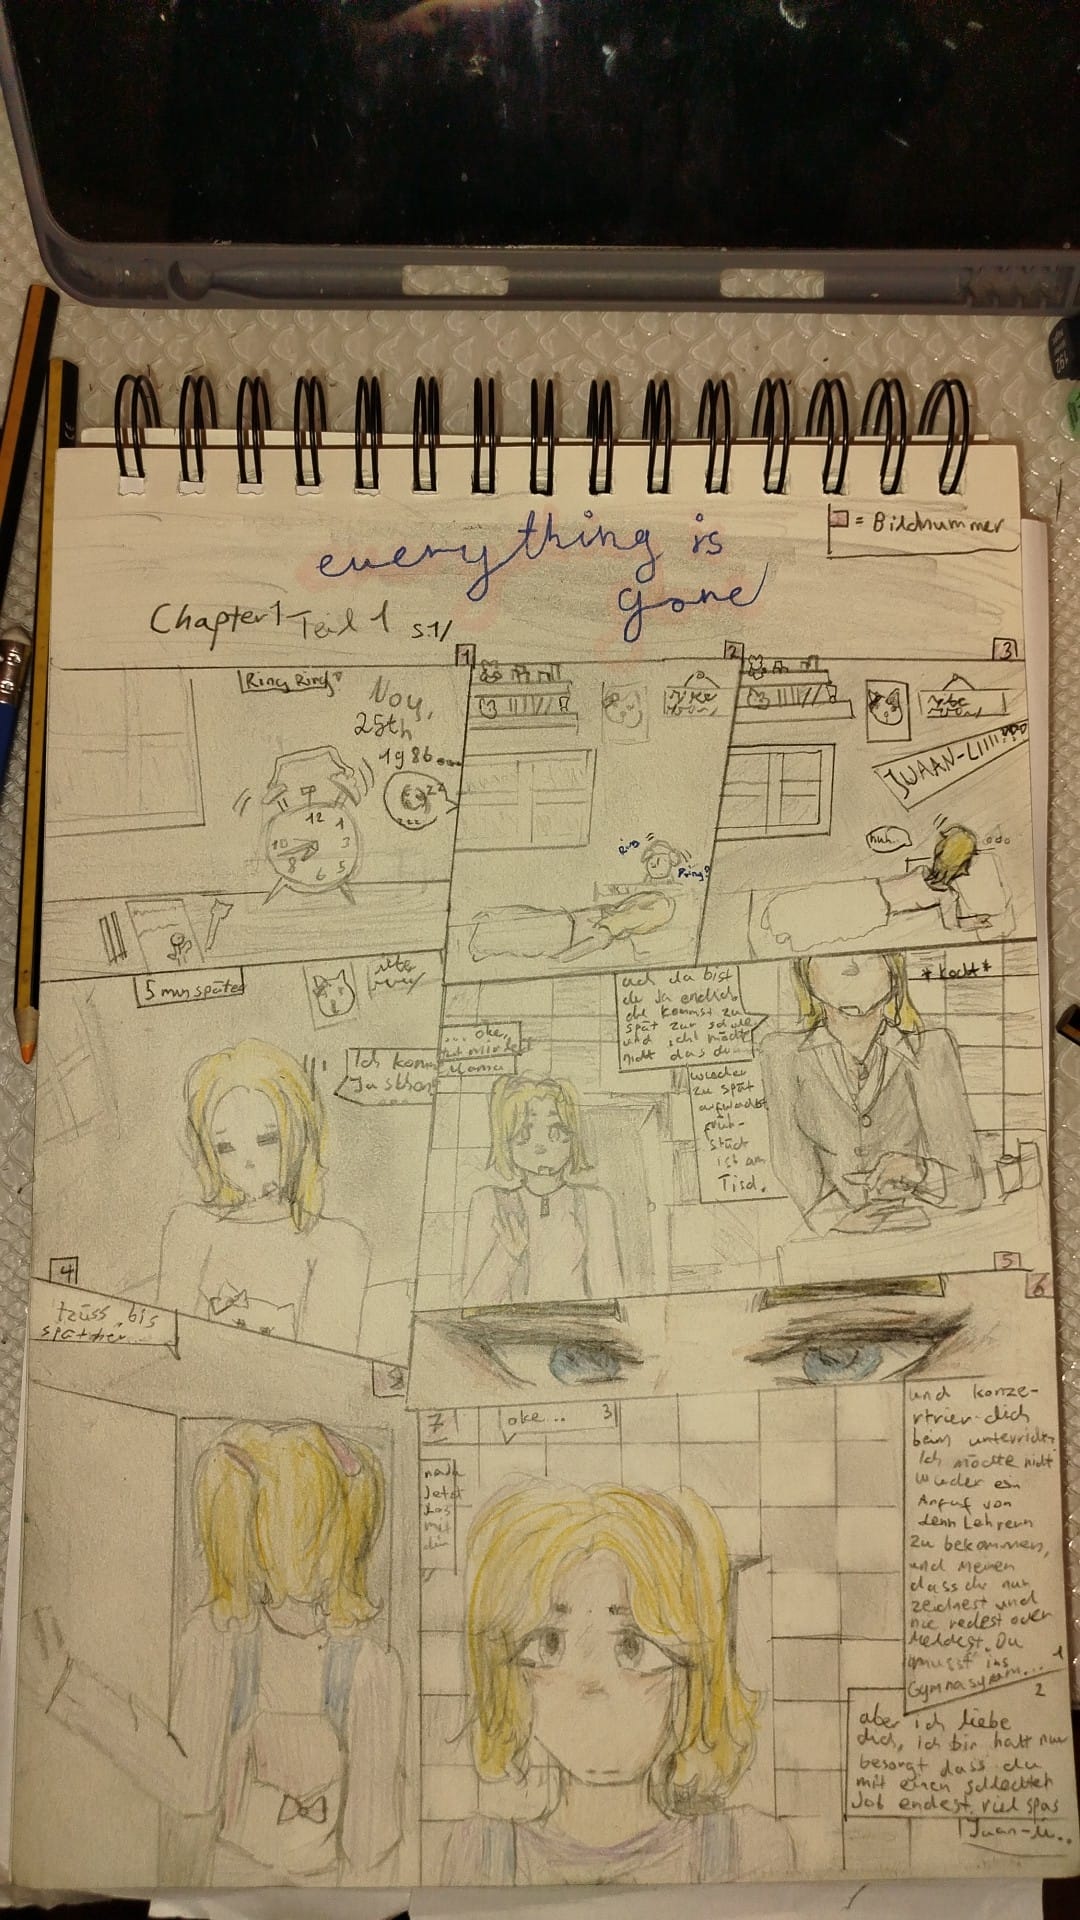 everything is
gone
= Bildnummer
Chapter 1 Teil 1 S.1/
1
2
3
Ring Ring?
Nov,
25th
1986...
12
1
3
5
6
8
10
zz
zzz
Ring
Ring?
JWAAN-LIIII???
huh..
5 min später
Ich komm
Ja schon
...
4
... oke,
Mama
ach da bist
du ja endlich
du kommst zu
spät zur schule
und ich möchte
nicht das du
wieder
zu spät
aufwachst
früh-
stück
ist am
Tisch.
*kocht*
5
6
tzüss, bis
spätcher...
8
7
oke... 3
und konze-
rtrier dich
beim unterricht
Ich möchte nicht
wieder ein
Anruf von
denn Lehrern
zu bekommen,
und meinen
dass du nur
zeichnest und
nie redest oder
meldest. Du
musst ins
Gymnasyum... 1
2
aber ich liebe
dich, ich bin halt nur
besorgt dass du
mit einen schlechten
Job endest, viel spas
Juan-li..